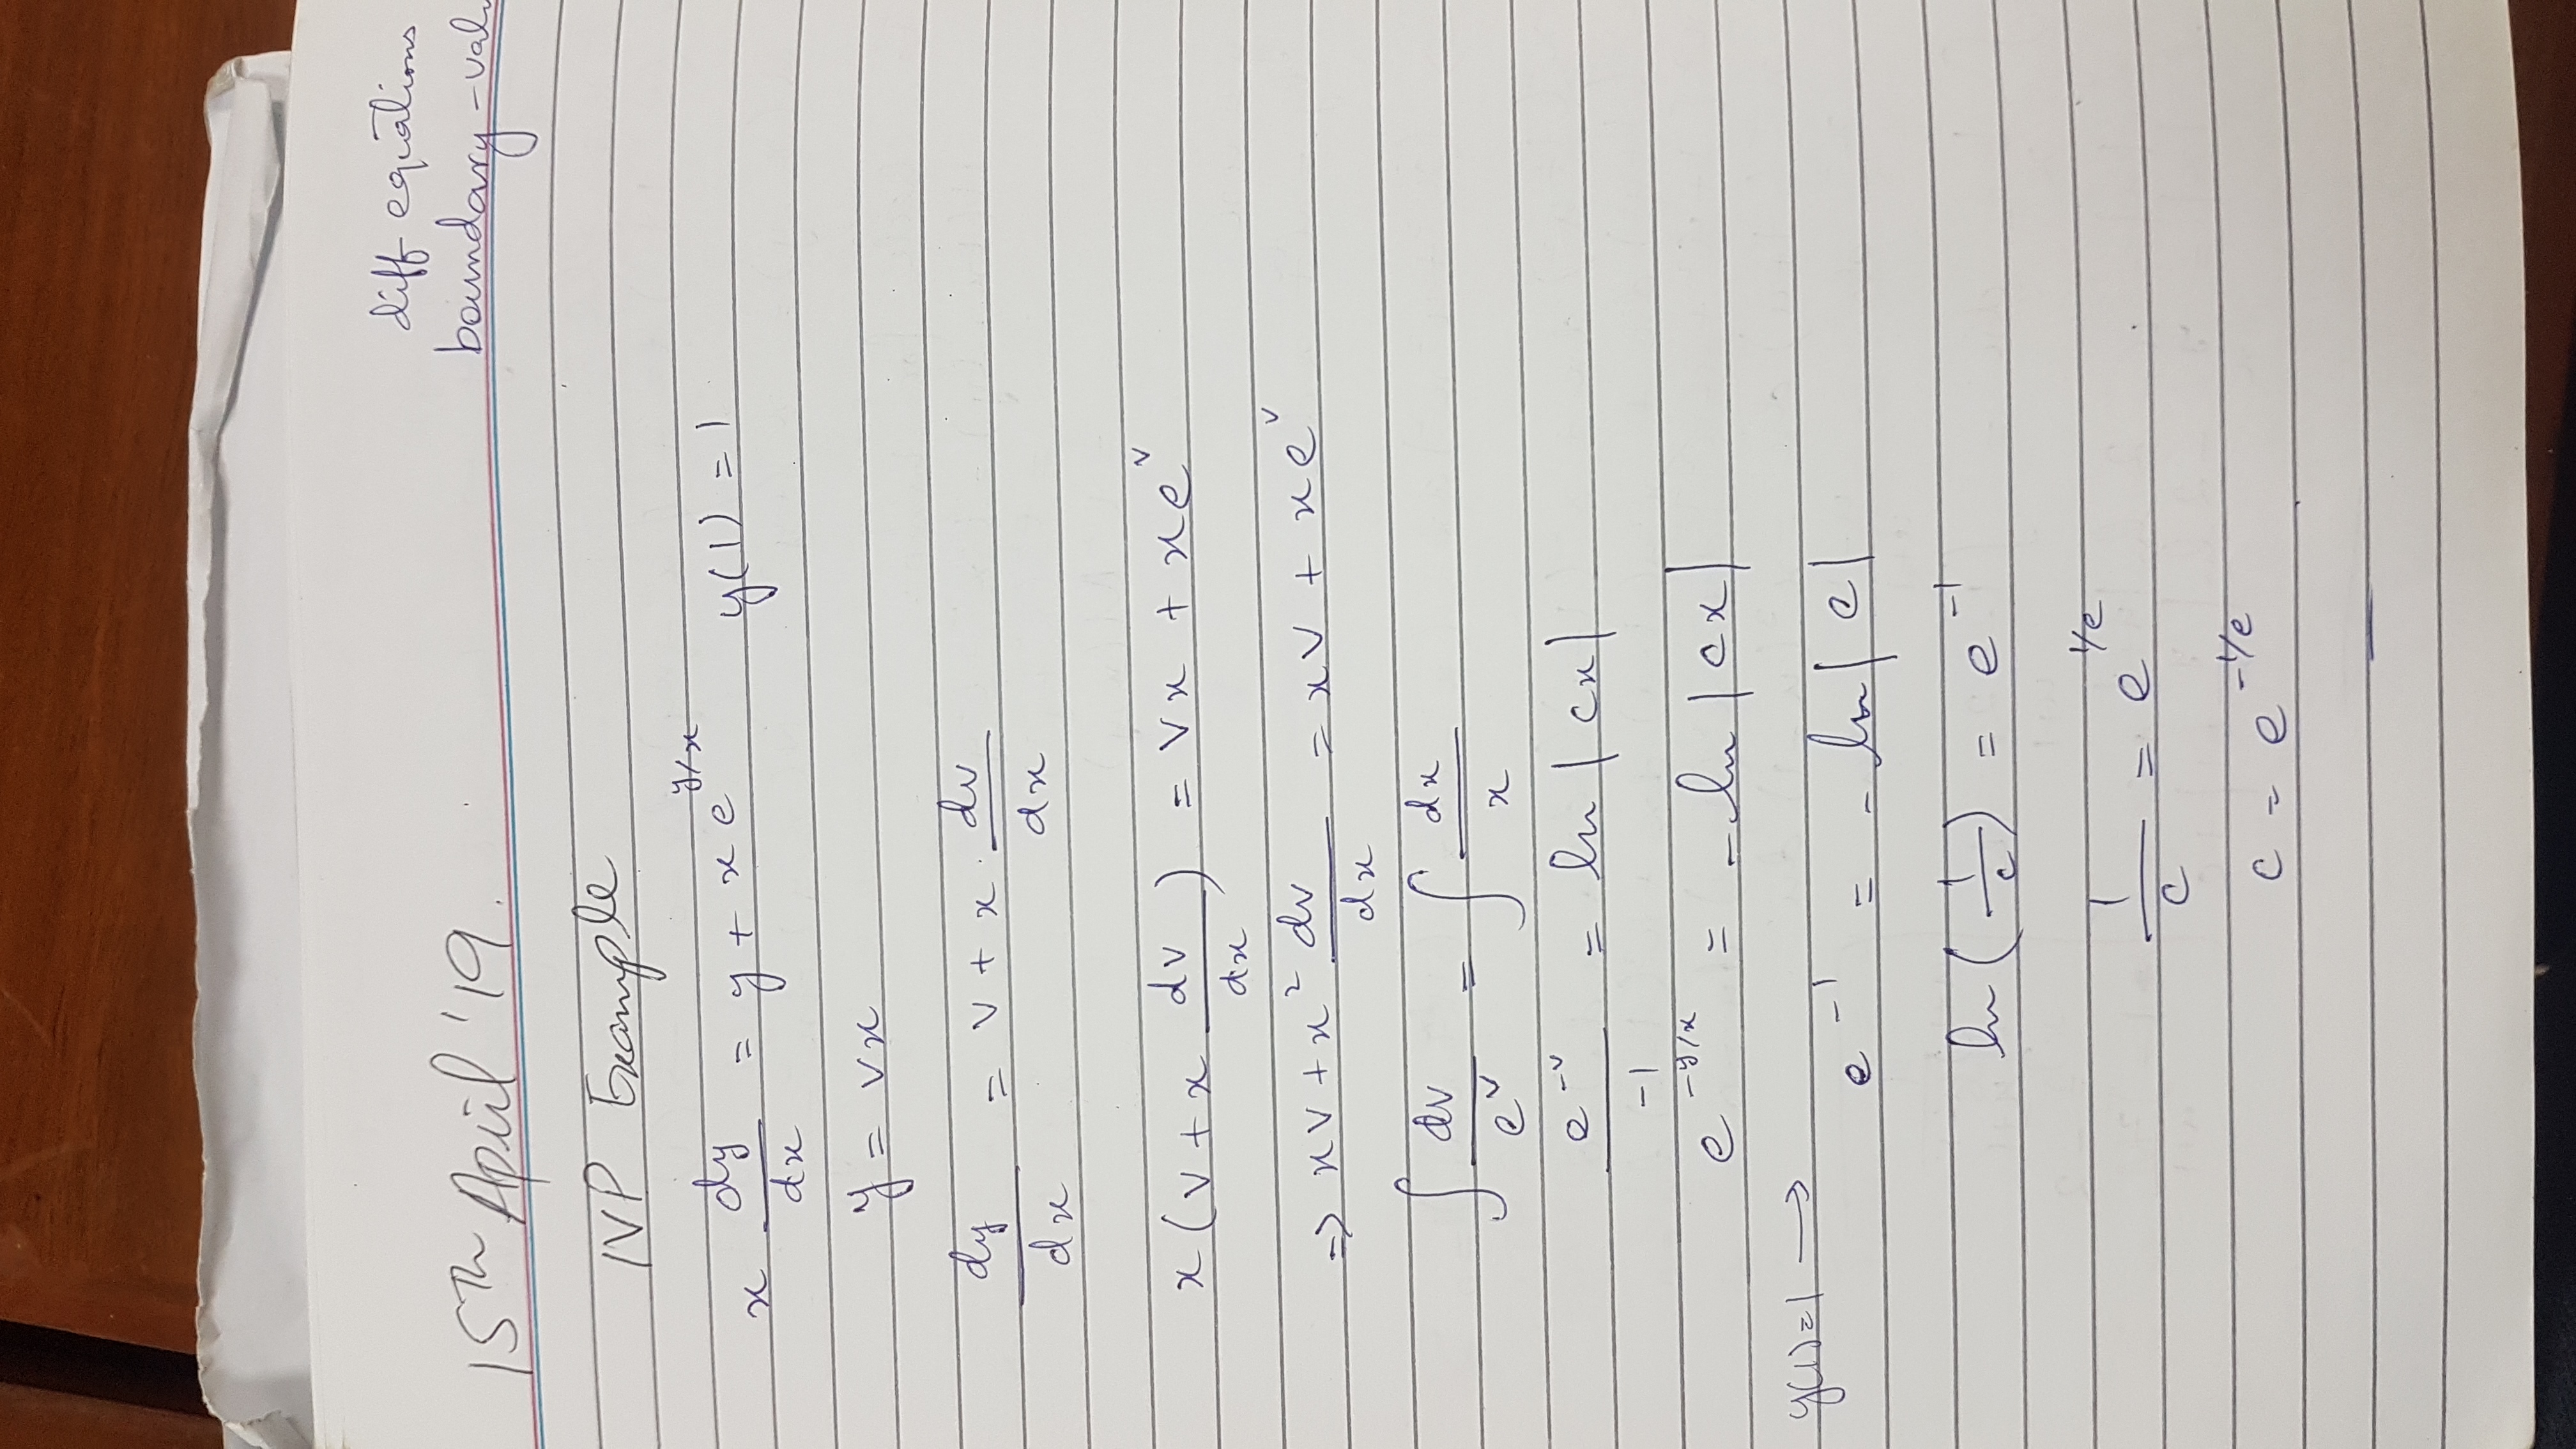 diff equations
boundary-valu
15Th April '19.
IVP Example
x dy/dx = y + x e^{y/x} y(1) = 1
y = vx
dy/dx = v + x . dv/dx
x(v + x dv/dx) = vx + xe^v
=> xv + x² dv/dx = xv + xe^v
∫ dv/e^v = ∫ dx/x
e^{-v}/-1 = ln |cx|
e^{-y/x} = -ln |cx|
y(1)=1 →
e^{-1} = -ln |c|
ln (1/c) = e^{-1}
1/c = e^{1/e}
c = e^{-1/e}